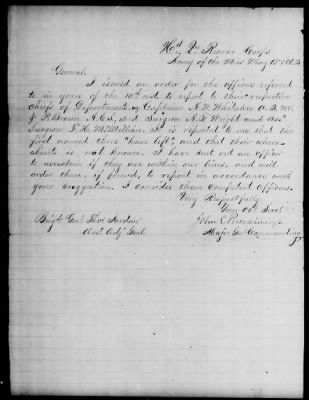 Hd Qrs Reserve Corps
Army of the Miss May 13th 1862
General,
I issued an order for the officers referred
to in yours of the 10th inst. to report to their respective
chiefs of Departments, Captains A. W. Whitaker A.Q.M.
J. P. Brown A.C.S, and Surgeon A. G. Wright and Ass.
Surgeon McWilliam. It is reported to me that the
first named three have left, and that their where
abouts is not known. I have sent out an officer
to ascertain if they are within our lines, and will
order them, if found, to report in accordance with
your suggestion. I consider them competent officers.
Very Respectfully
Your Obt Servt
John C. Breckinridge
Major Gen Commanding
Brigd Genl Thos Jordan
Asst Adjt Genl